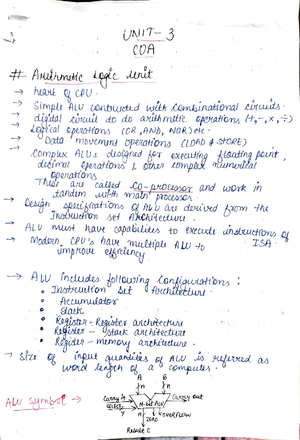 UNIT- 3
COA
# Arithmetic Logic Unit
→ heart of CPU.
→ Simple ALU contructed with Combinational circuits.
→ digital circuit to do arithmetic operations (+,-,×,÷)
→ Logical operations (OR, AND, NOR) etc.
→ Data movement operations (LOAD & STORE)
→ Complex ALUs designed for executing floating point,
decimal operations & other complex numerical
operations
These are called co-processor and work in
tandem with main processor.
→ Design specifications of ALU are derived from the
Instruction set Architecture.
→ ALU must have capabilities to execute instructions of
ISA.
→ Modern CPU's have multiple ALU to
improve efficiency
→ ALU includes following Configurations:
• Instruction Set Architecture.
• Accumulator
• Stack
• Register-Register architecture
• Register - Stack architecture
• Register-memory architecture.
→ Size of input quantities of ALU is referred as
word length of a computer.
ALU Symbol →
A B
n n
Carry in
Carry out
SELECT
N-bit ALU
n
ZERO
OVERFLOW
Result C